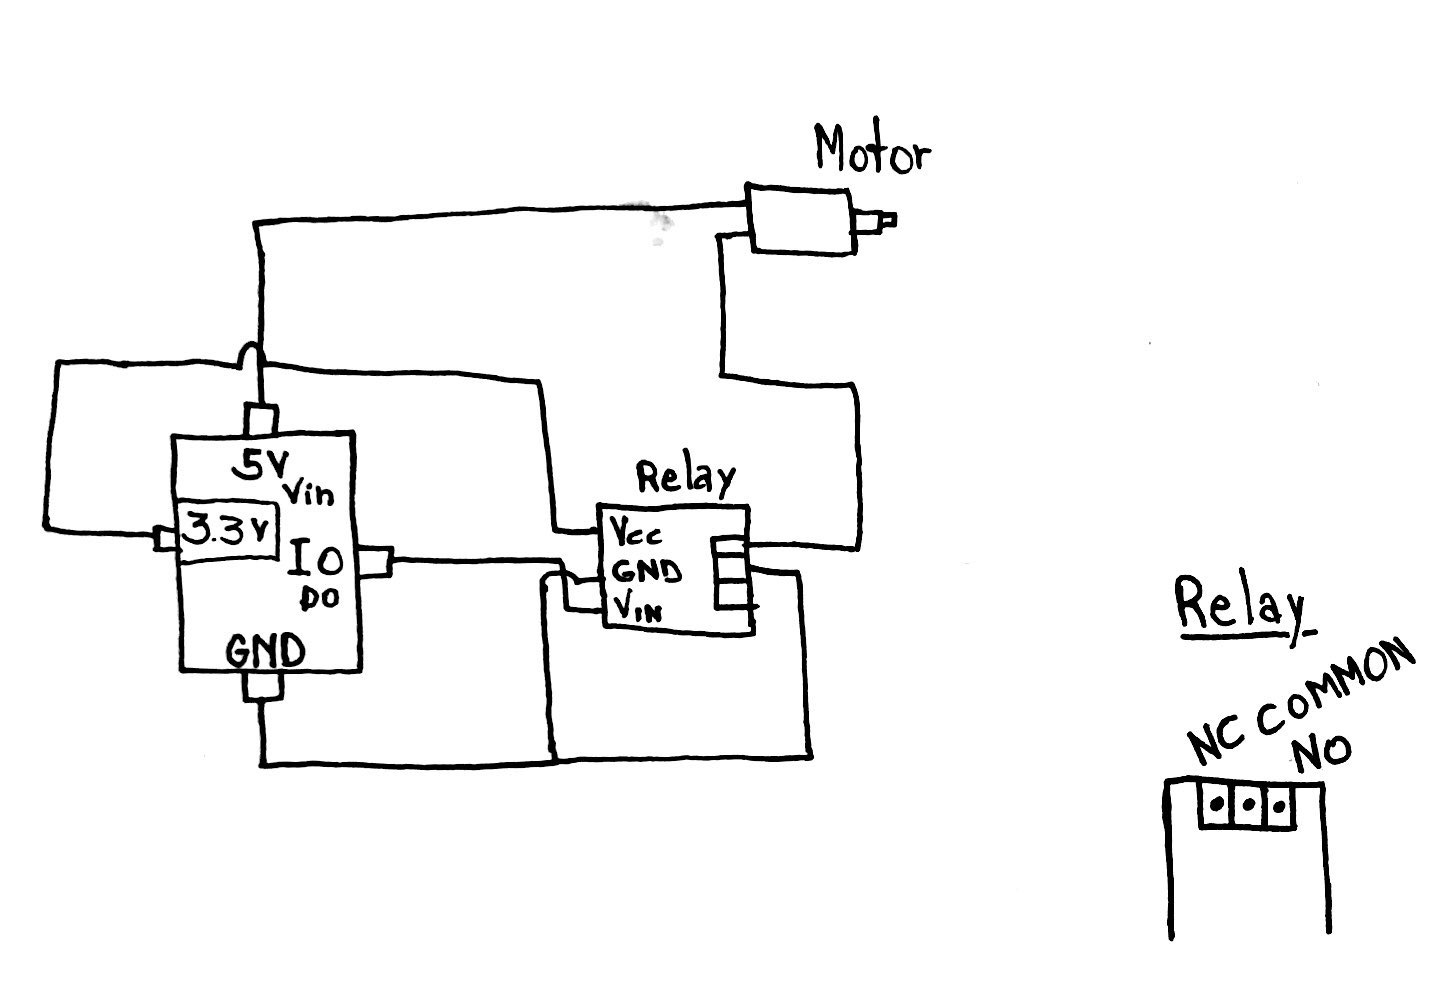 Motor
5V
Vin
3.3V
IO
DO
GND
Relay
Vcc
GND
VIN
Relay
NC COMMON
NO